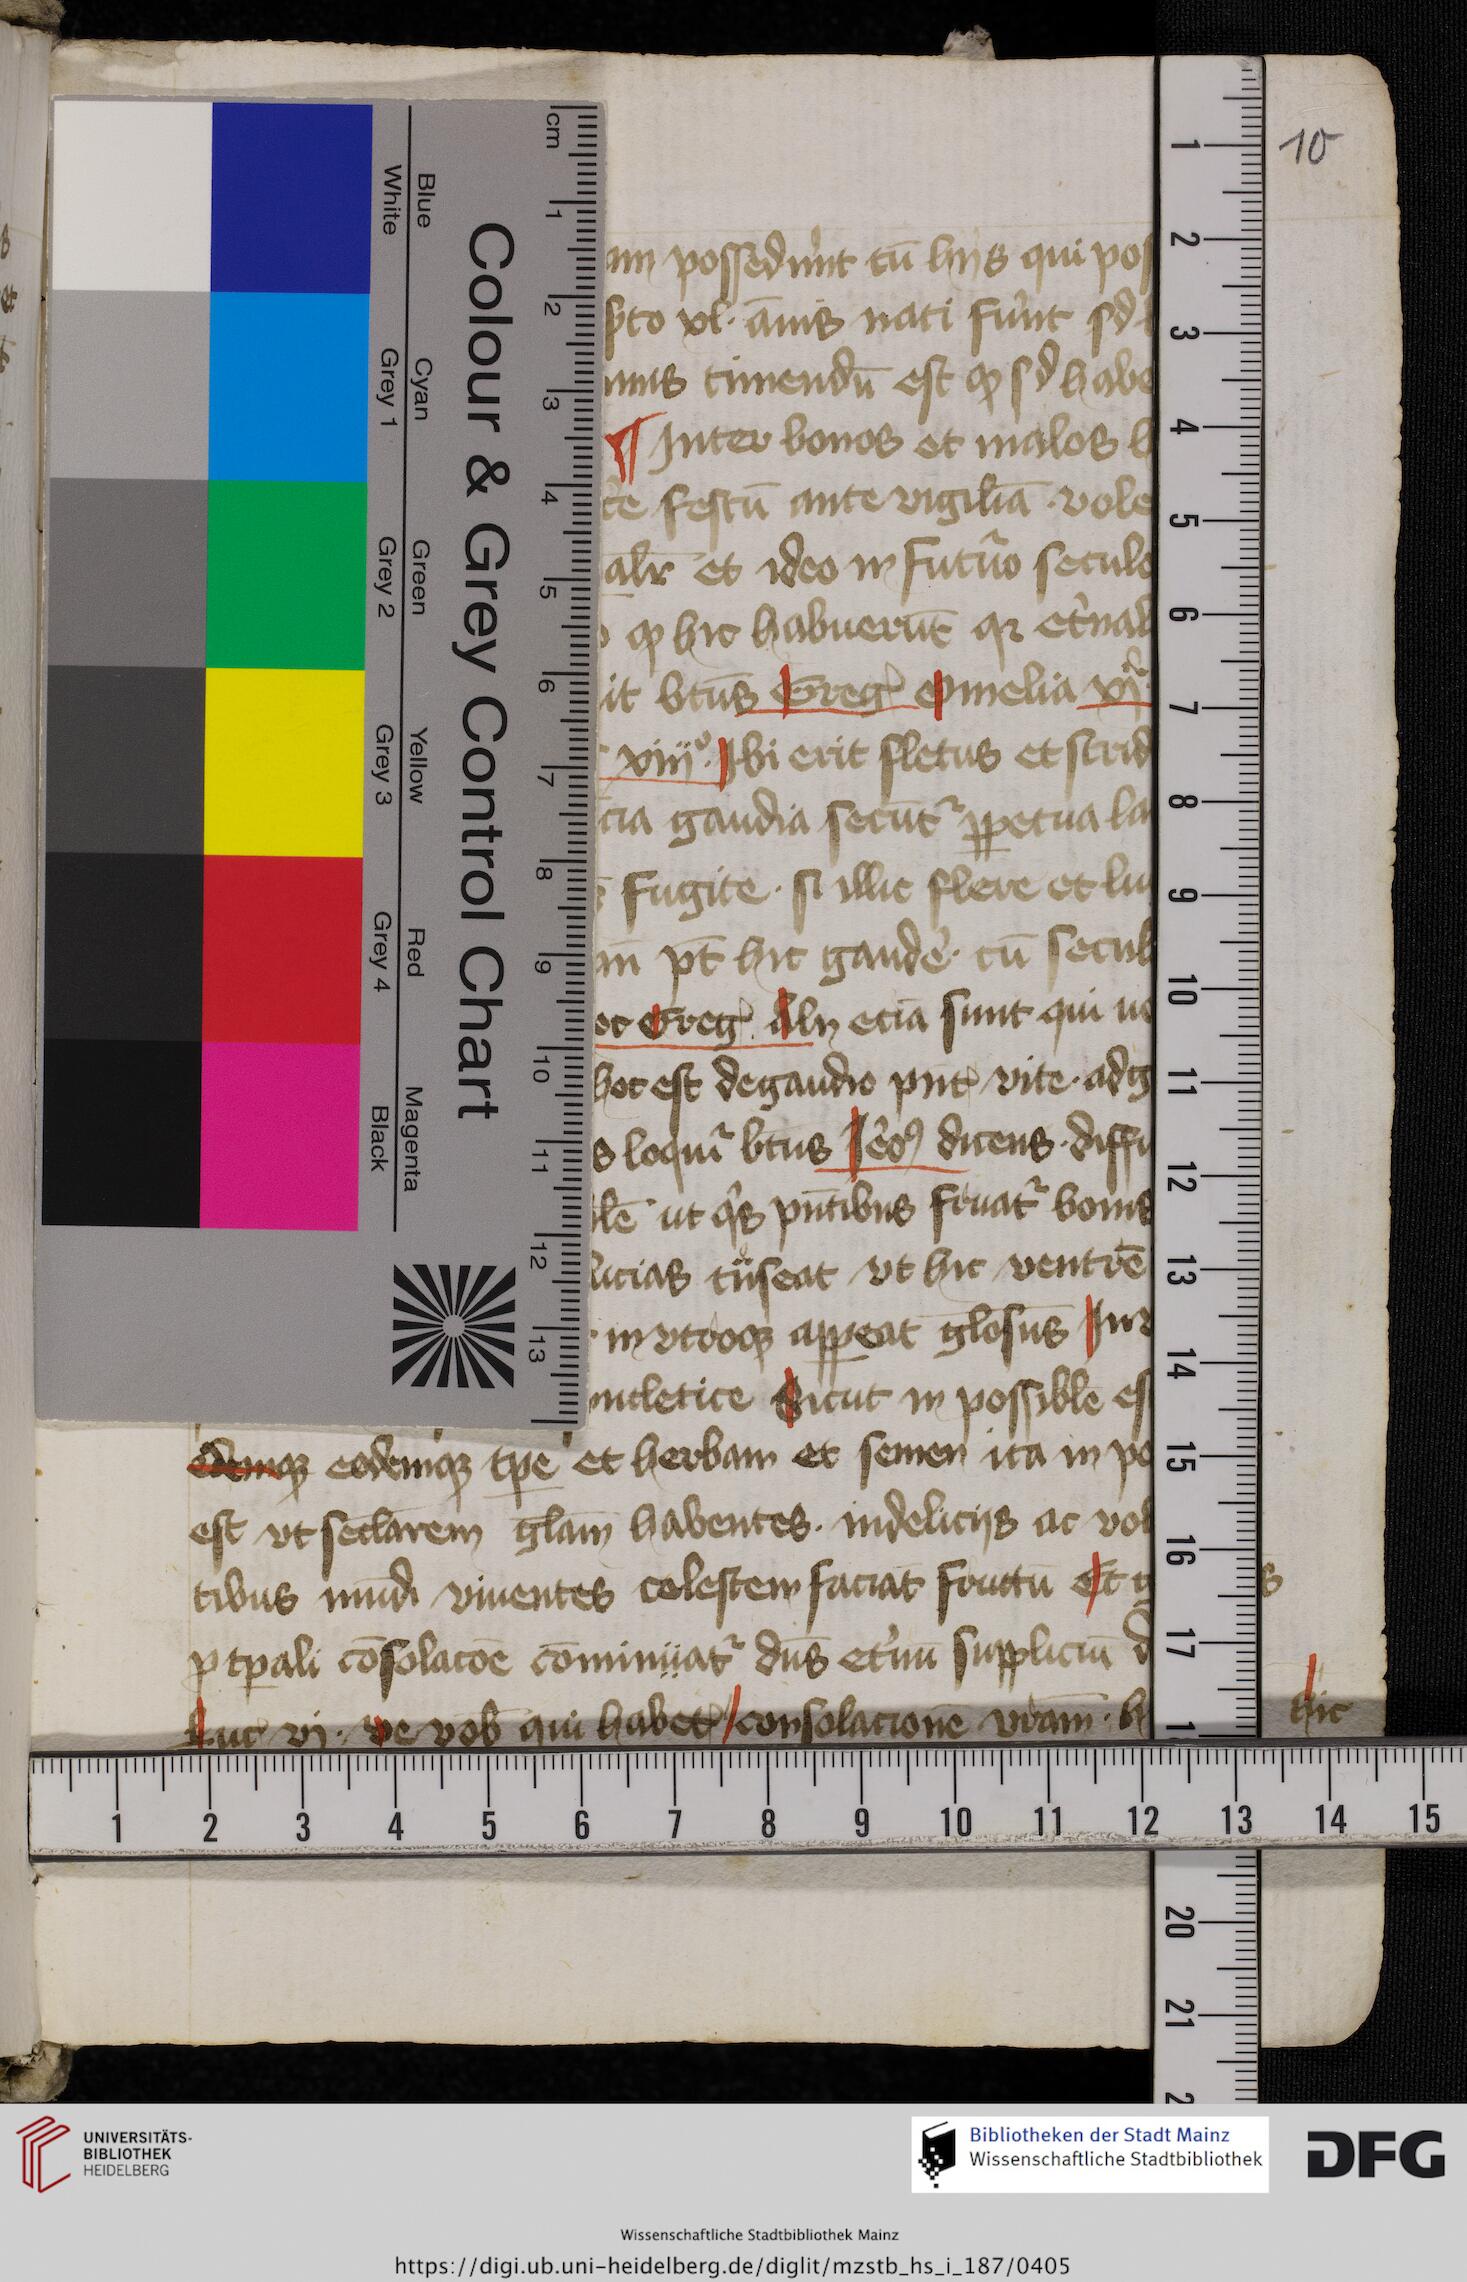 10
am possedert cū hijs qui pos
pto xl. ānis nati fuer̄t sꝫ
timendū est ꝙ sꝫ habe
¶ Inter bonos et malos
festū ante vigiliā . vole
et ideo in futuro seculo
ꝙ hic habuerūt qꝛ et'nal
it bt̄us Greg̛ Omelia
viijº. Ibi erit fletus et strid
cia gaudia secūt̛ ꝑpetua la
fugite . si illic flere et lu
pt̄ hic gaude'. cū secul
oc Greg̛. Alij eciā sunt qui
hoc est de gaudio pn̄t̛ vite . ad g
s loquit̛ bt̄us Ieroꝰ dicens . diffi
ut q's pn̄tibus fruat̛ bonis
licias t̛nseat vt hic ventrē
in vtroqꝫ appeat gl̄osus In
Sicut in possible es
edemqꝫ eodemqꝫ tp̄e et herbam et semen ita in po
est vt sec̄larem gl̄am habentes . in delicijs ac vol
tibus mūdi viuentes celestem faciāt fructū Et g
s
ꝑ tp̄ali cōsolacōe cōminijat̛ dn̄s et'nū suppliciū d
Luc̛ vj. ve vob̄ qui habet̛ consolacionē vr̄am . h
hic
Colour & Grey Control Chart
Blue
White
Cyan
Grey 1
Green
Grey 2
Yellow
Grey 3
Red
Grey 4
Magenta
Black
cm
1
2
3
4
5
6
7
8
9
10
11
12
13
1
2
3
4
5
6
7
8
9
10
11
12
13
14
15
16
17
1
1 2 3 4 5 6 7 8 9 10 11 12 13 14 15
20
21
2
UNIVERSITÄTS-
BIBLIOTHEK
HEIDELBERG
Bibliotheken der Stadt Mainz
Wissenschaftliche Stadtbibliothek
DFG
Wissenschaftliche Stadtbibliothek Mainz
https://digi.ub.uni-heidelberg.de/diglit/mzstb_hs_i_187/0405